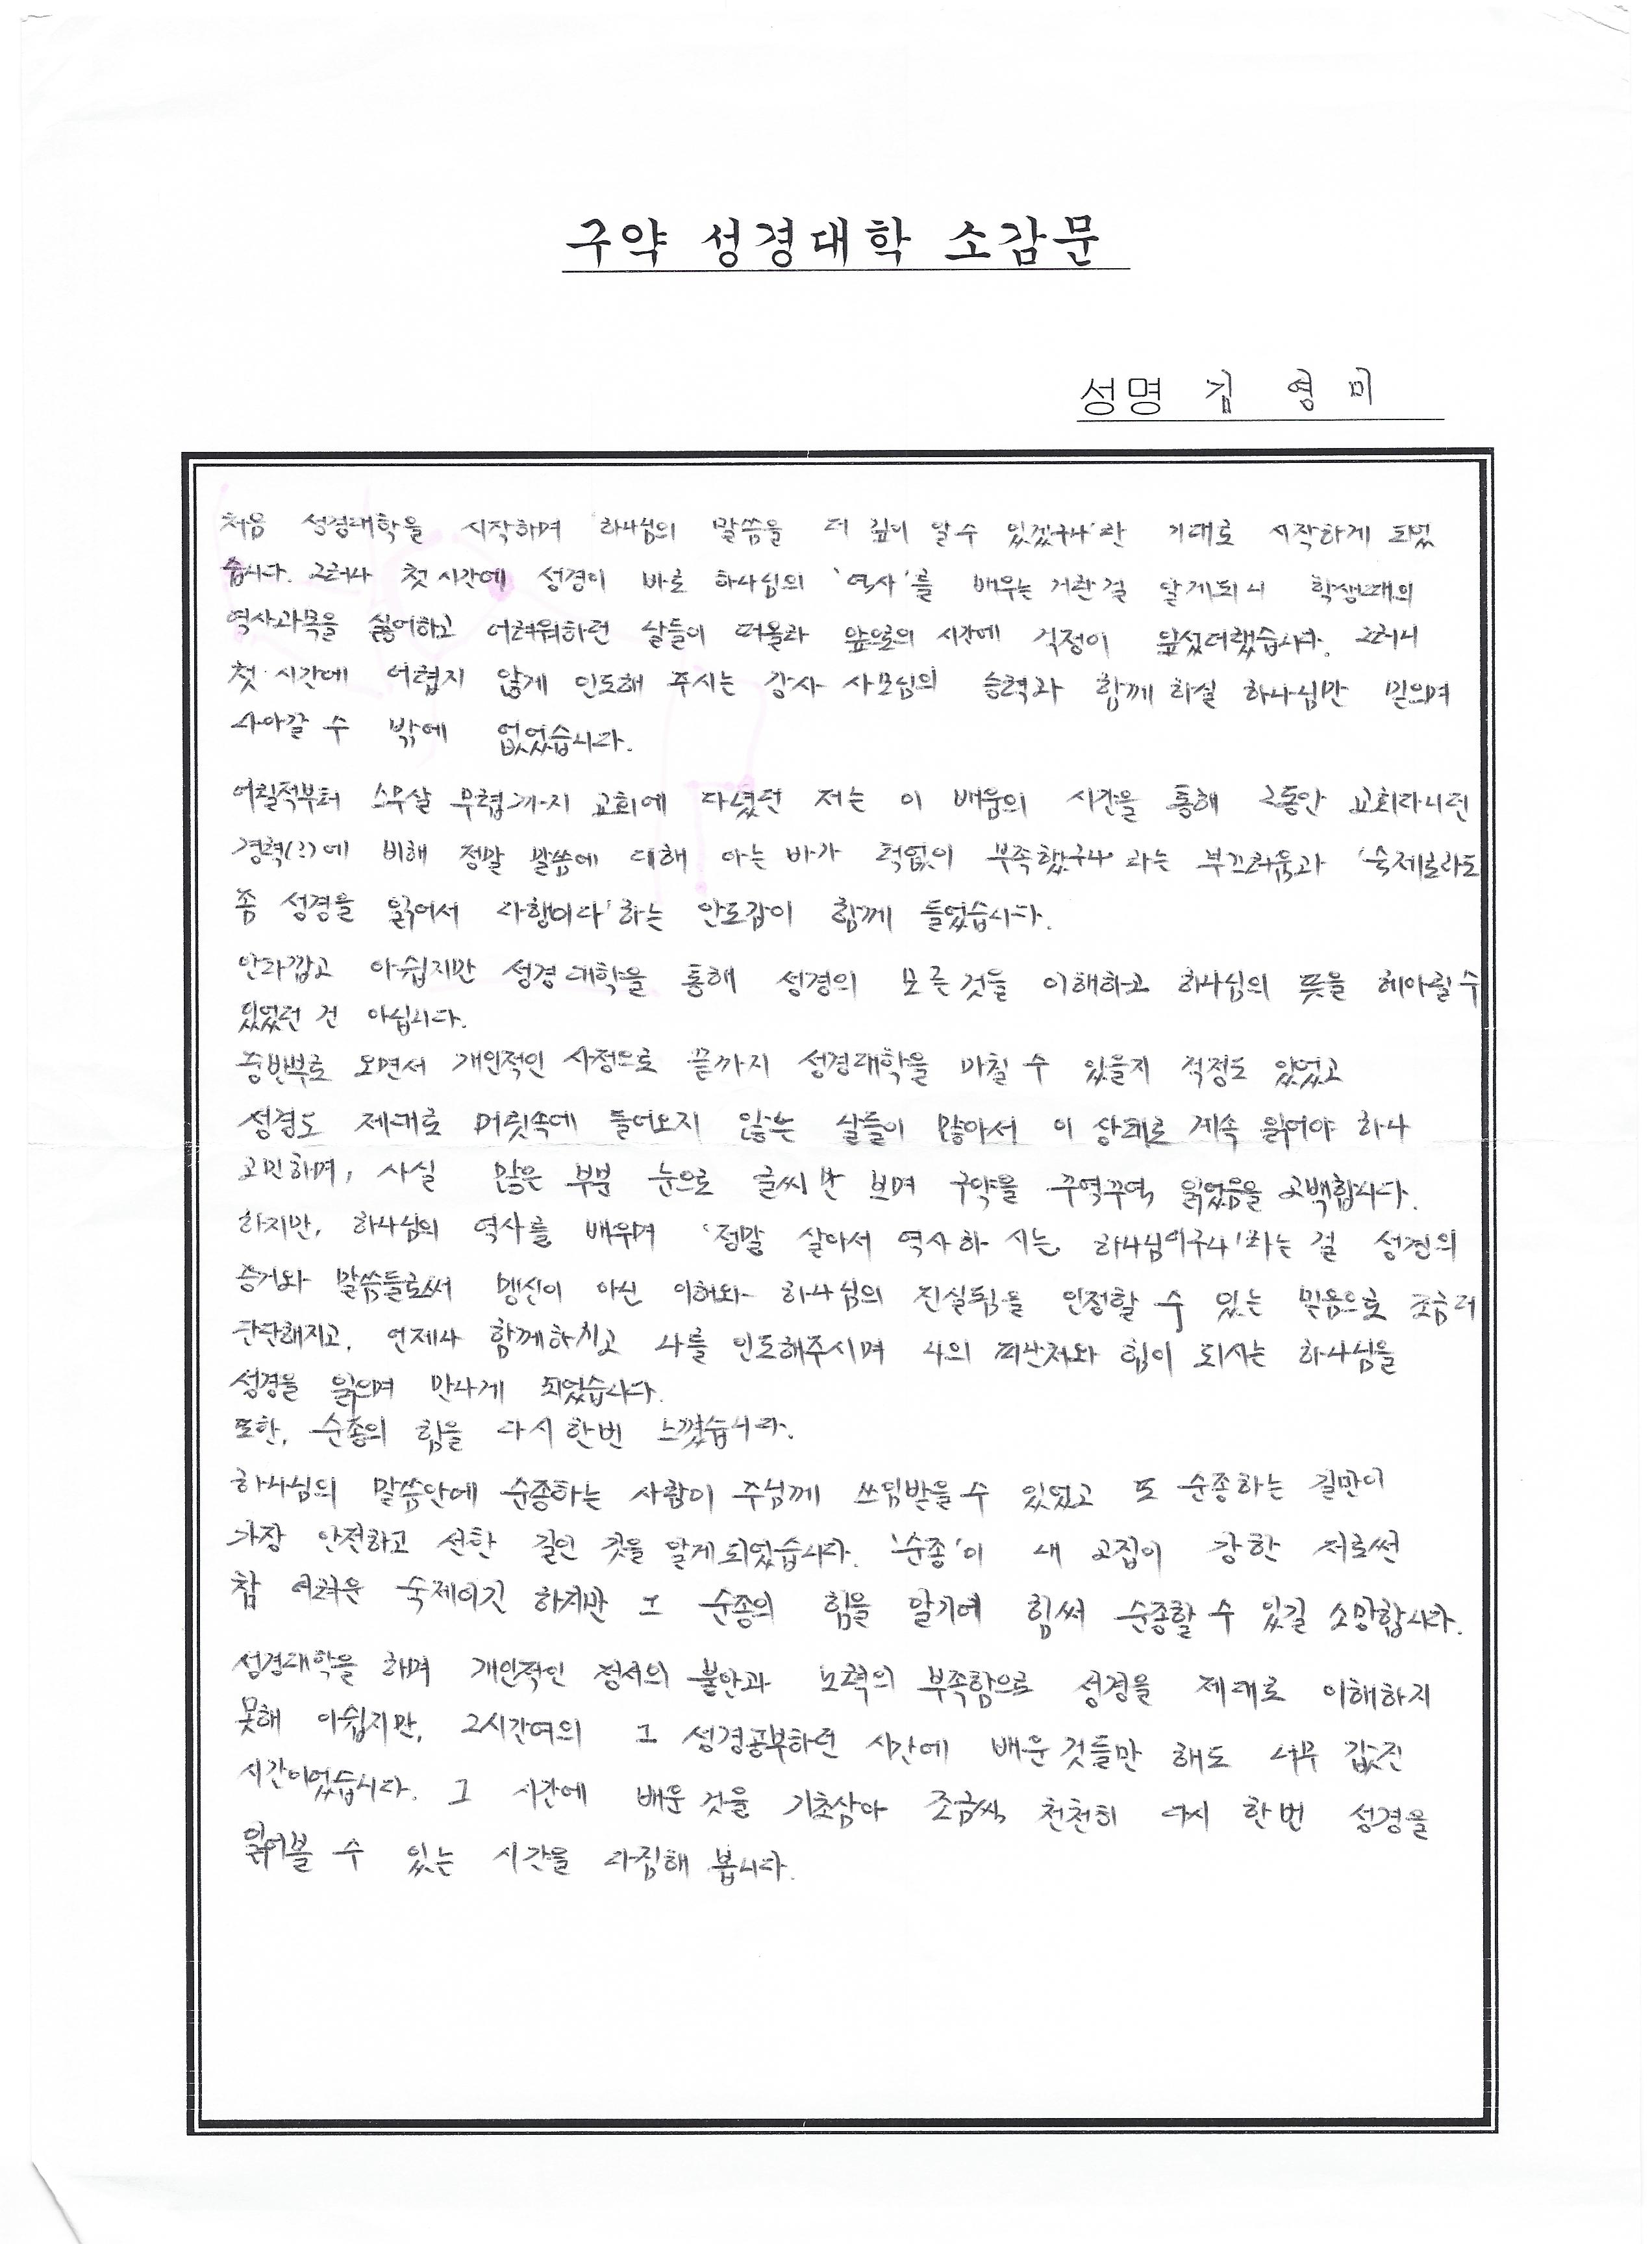 구약 성경대학 소감문
성명 김 영 미
처음 성경대학을 시작하며 '하나님의 말씀을 더 깊이 알 수 있겠구나'란 기대로 시작하게 되었
습니다. 그러나 첫 시간에 성경이 바로 하나님의 '역사'를 배우는 거란 걸 알게되니 학생때의
역사과목을 싫어하고 어려워하던 날들이 떠올라 앞으로의 시간에 걱정이 앞섰더랬습니다. 그러니
첫 시간에 어렵지 않게 인도해 주시는 강사 사모님의 능력과 함께 하실 하나님만 믿으며
나아갈 수 밖에 없었습니다.
어릴적부터 스무살 무렵까지 교회에 다녔던 저는 이 배움의 시간을 통해 그동안 교회다니던
경력(?)에 비해 정말 말씀에 대해 아는 바가 턱없이 부족했구나' 라는 부끄러움과 '숙제로라도
좀 성경을 읽어서 다행이다' 하는 안도감이 함께 들었습니다.
안타깝고 아쉽지만 성경 대학을 통해 성경의 모든 것들을 이해하고 하나님의 뜻을 헤아릴 수
있었던 건 아닙니다.
중반부로 오면서 개인적인 사정으로 끝까지 성경대학을 마칠 수 있을지 걱정도 있었고
성경도 제대로 머릿속에 들어오지 않는 날들이 많아서 이 상태로 계속 읽어야 하나
고민하며, 사실 많은 부분 눈으로 글씨만 보며 구약을 꾸역꾸역 읽었음을 고백합니다.
하지만, 하나님의 역사를 배우며 '정말 살아서 역사하시는 하나님이구나'하는 걸 성전의
증거와 말씀들로써 맹신이 아닌 이해와 하나님의 진실됨을 인정할 수 있는 믿음으로 조금 더
단단해지고, 언제나 함께하시고 나를 인도해주시며 나의 피난처와 힘이 되시는 하나님을
성경을 읽으며 만나게 되었습니다.
또한, 순종의 힘을 다시 한번 느꼈습니다.
하나님의 말씀안에 순종하는 사람이 주님께 쓰임받을 수 있었고 또 순종하는 길만이
가장 안전하고 선한 길인 것을 알게 되었습니다. '순종'이 내 고집이 강한 저로썬
참 어려운 숙제이긴 하지만 그 순종의 힘을 알기에 힘써 순종할 수 있길 소망합니다.
성경대학을 하며 개인적인 정서의 불안과 노력의 부족함으로 성경을 제대로 이해하지
못해 아쉽지만, 2시간여의 그 성경공부하던 시간에 배운 것들만 해도 너무 값진
시간이었습니다. 그 시간에 배운 것을 기초삼아 조금씩 천천히 다시 한번 성경을
읽어볼 수 있는 시간을 다짐해 봅니다.